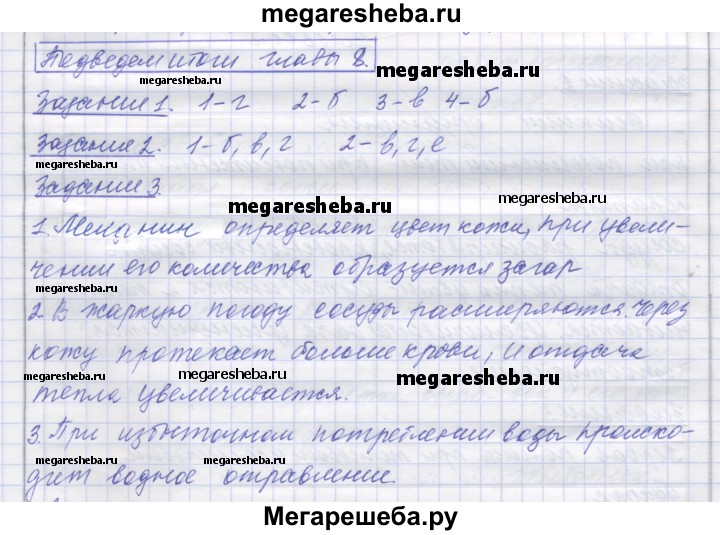 megaresheba.ru
Подведем итоги главы 8.
megaresheba.ru
megaresheba.ru
Задание 1. 1-г 2-б 3-в 4-б
Задание 2. 1-б, в, г 2-в, г, е
megaresheba.ru
Задание 3.
megaresheba.ru
1. Меланин определяет цвет кожи, при увели-
чении его количества образуется загар
megaresheba.ru
2. В жаркую погоду сосуды расширяются. Через
кожу протекает больше крови, и отдача
megaresheba.ru megaresheba.ru megaresheba.ru
тепла увеличивается.
3. При избыточном потреблении воды происхо-
megaresheba.ru megaresheba.ru
дит водное отравление.
megaresheba.ru
Мегарешеба.ру